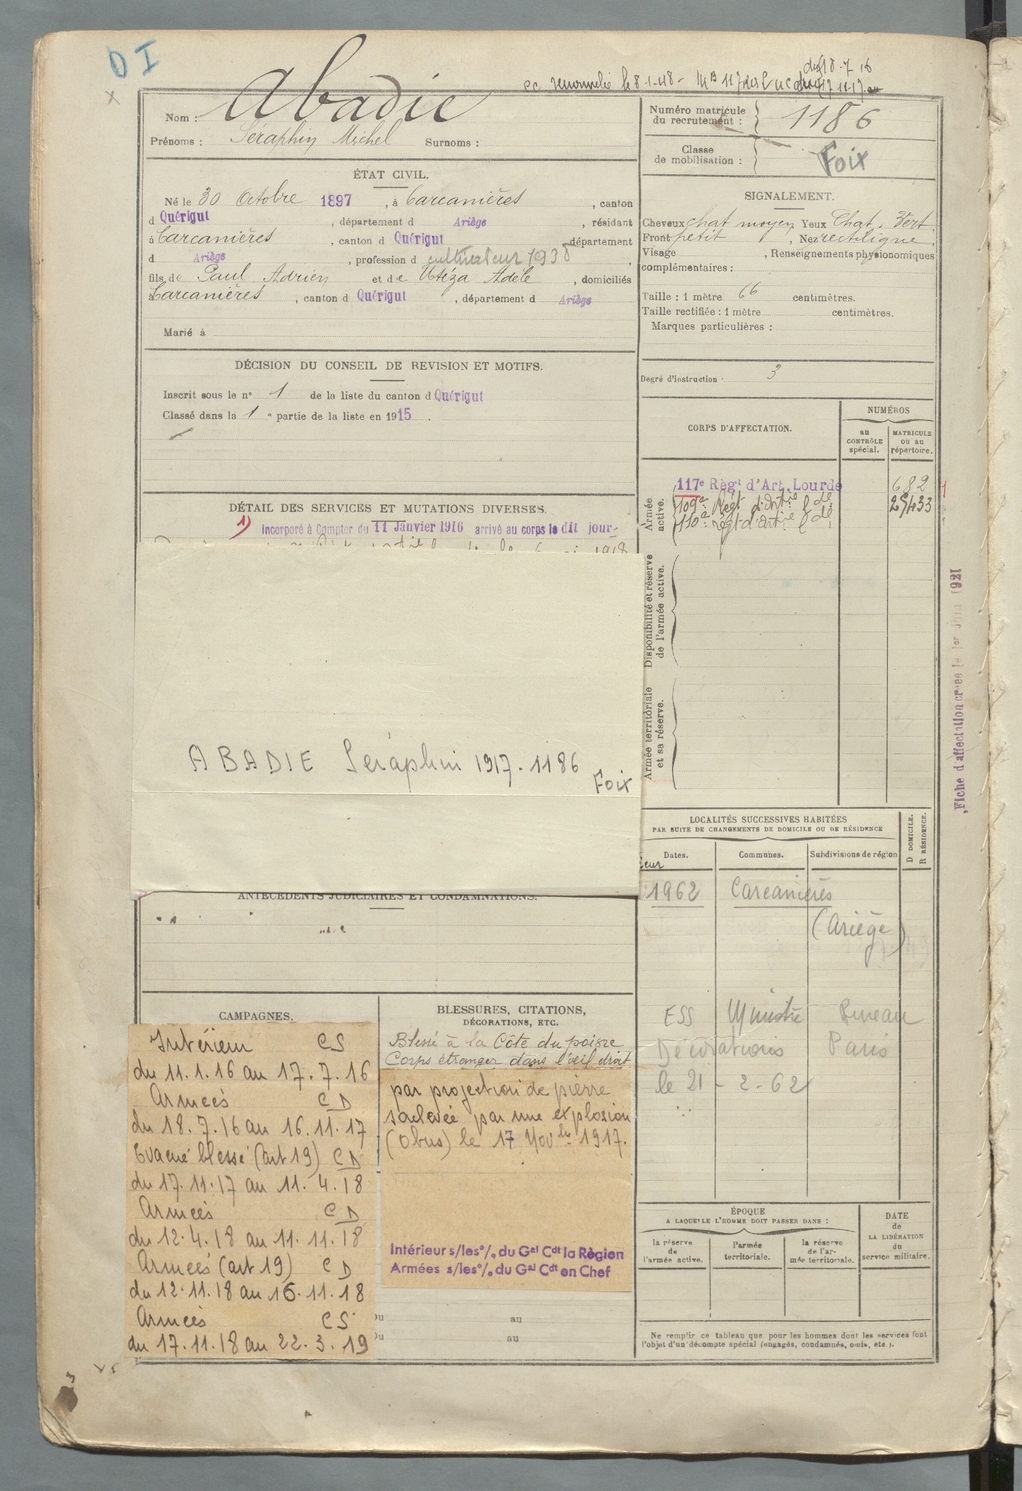 DI
Nom : Abadie
Prénoms : Séraphin Michel Surnoms :
Numéro matricule du recrutement : 1186
Classe de mobilisation : Foix
ÉTAT CIVIL.
Né le 30 Octobre 1897, à Carcanières, canton
d Quérigut, département d Ariège, résidant
à Carcanières, canton d Quérigut, département
d Ariège, profession d cultivateur 1938,
fils de Paul Adrien et de Utéza Adèle, domiciliés
Carcanières, canton d Quérigut, département d Ariège
Marié à
SIGNALEMENT.
Cheveux chat moyen Yeux Chat. Vert
Front petit, Nez rectiligne,
Visage, Renseignements physionomiques
complémentaires :
Taille : 1 mètre 66 centimètres.
Taille rectifiée : 1 mètre centimètres.
Marques particulières :
Degré d'instruction : 3
DÉCISION DU CONSEIL DE REVISION ET MOTIFS.
Inscrit sous le n° 1 de la liste du canton d Quérigut
Classé dans la 1e partie de la liste en 1915.
CORPS D'AFFECTATION.
NUMÉROS
au CONTRÔLE spécial.
MATRICULE ou au répertoire.
Armée active.
117e Régt d'Art. Lourde 682
109e Régt d'Artie lde 25433
110e régt d'artie lde
Disponibilité et réserve de l'armée active.
Armée territoriale et sa réserve.
Fiche d'affectation créée le 1er Juin 1921
DÉTAIL DES SERVICES ET MUTATIONS DIVERSES.
1) Incorporé à Compter du 11 Janvier 1916 arrivé au corps le dit jour-
ABADIE Séraphin 1917-1186
Foix
LOCALITÉS SUCCESSIVES HABITÉES
PAR SUITE DE CHANGEMENTS DE DOMICILE OU DE RÉSIDENCE
D DOMICILE.
R RÉSIDENCE.
Dates. Communes. Subdivisions de région
1962 Carcanières
(Ariège)
ESS Ministre Bureau
Décorations Paris
le 21-2-62
ANTÉCÉDENTS JUDICIAIRES ET CONDAMNATIONS.
CAMPAGNES.
Intérieur CS
du 11.1.16 au 17.7.16
Armées CD
du 18.7.16 au 16.11.17
Evacué blessé (art 19) CD
du 17.11.17 au 11.4.18
Armées CD
du 12.4.18 au 11.11.18
Armées (art 19) CD
du 12.11.18 au 16.11.18
Armées CS
du 17.11.18 au 22.3.19
BLESSURES, CITATIONS,
DÉCORATIONS, ETC.
Blessé à la Côte du poivre
Corps étranger dans l'œil droit
par projection de pierre
soulevée par une explosion
(obus) le 17 Novbre 1917.
Intérieur s/les o/. du Gal Cdt la Région
Armées s/les o/. du Gal Cdt en Chef
Du au
Du au
ÉPOQUE
A LAQUELLE L'HOMME DOIT PASSER DANS :
la réserve de l'armée active.
l'armée territoriale.
la réserve de l'armée territoriale.
DATE de LA LIBÉRATION du service militaire.
Ne remplir ce tableau que pour les hommes dont les services font
l'objet d'un décompte spécial (engagés, condamnés, omis, etc.).